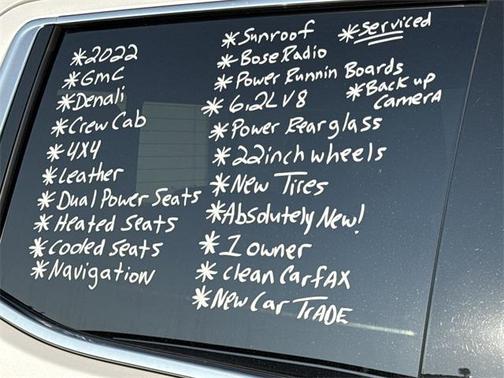 *2022
*GMC
*Denali
*Crew Cab
*4X4
*Leather
*Dual Power Seats
*Heated Seats
*Cooled Seats
*Navigation
*Sunroof
*Bose Radio
*Power Runnin Boards
*6.2L V8
*Power Rear glass
*22inch wheels
*New Tires
*Absolutely New!
*1 owner
*clean CarfAX
*New Car TRADE
*Serviced
*Back up
CAMERA